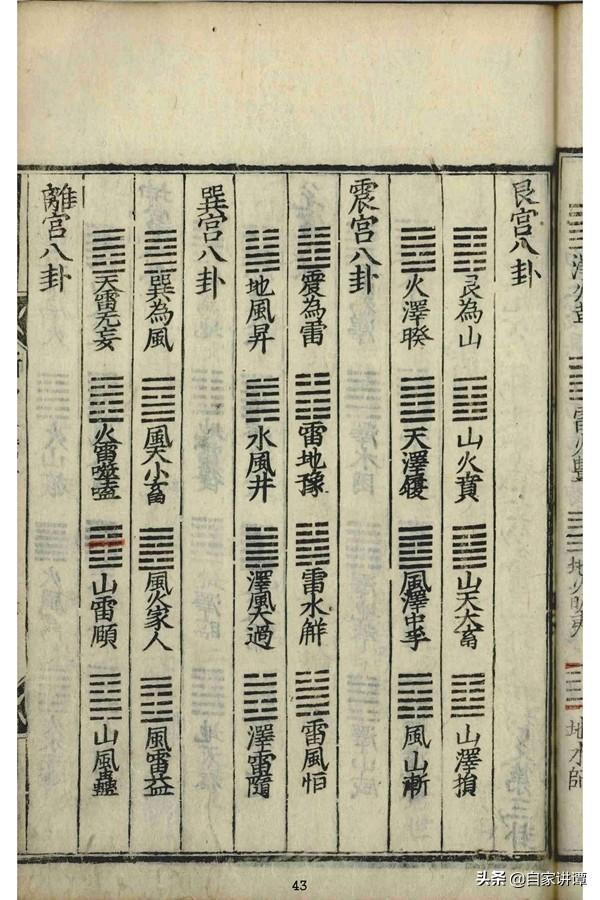 地水師
艮宫八卦
艮為山 山火賁 山天大畜 山澤損
火澤睽 天澤履 風澤中孚 風山漸
震宫八卦
震為雷 雷地豫 雷水解 雷風恒
地風昇 水風井 澤風大過 澤雷隨
巽宫八卦
巽為風 風天小畜 風火家人 風雷益
天雷无妄 火雷噬嗑 山雷頤 山風蠱
離宫八卦
43
头条 @自家讲谭